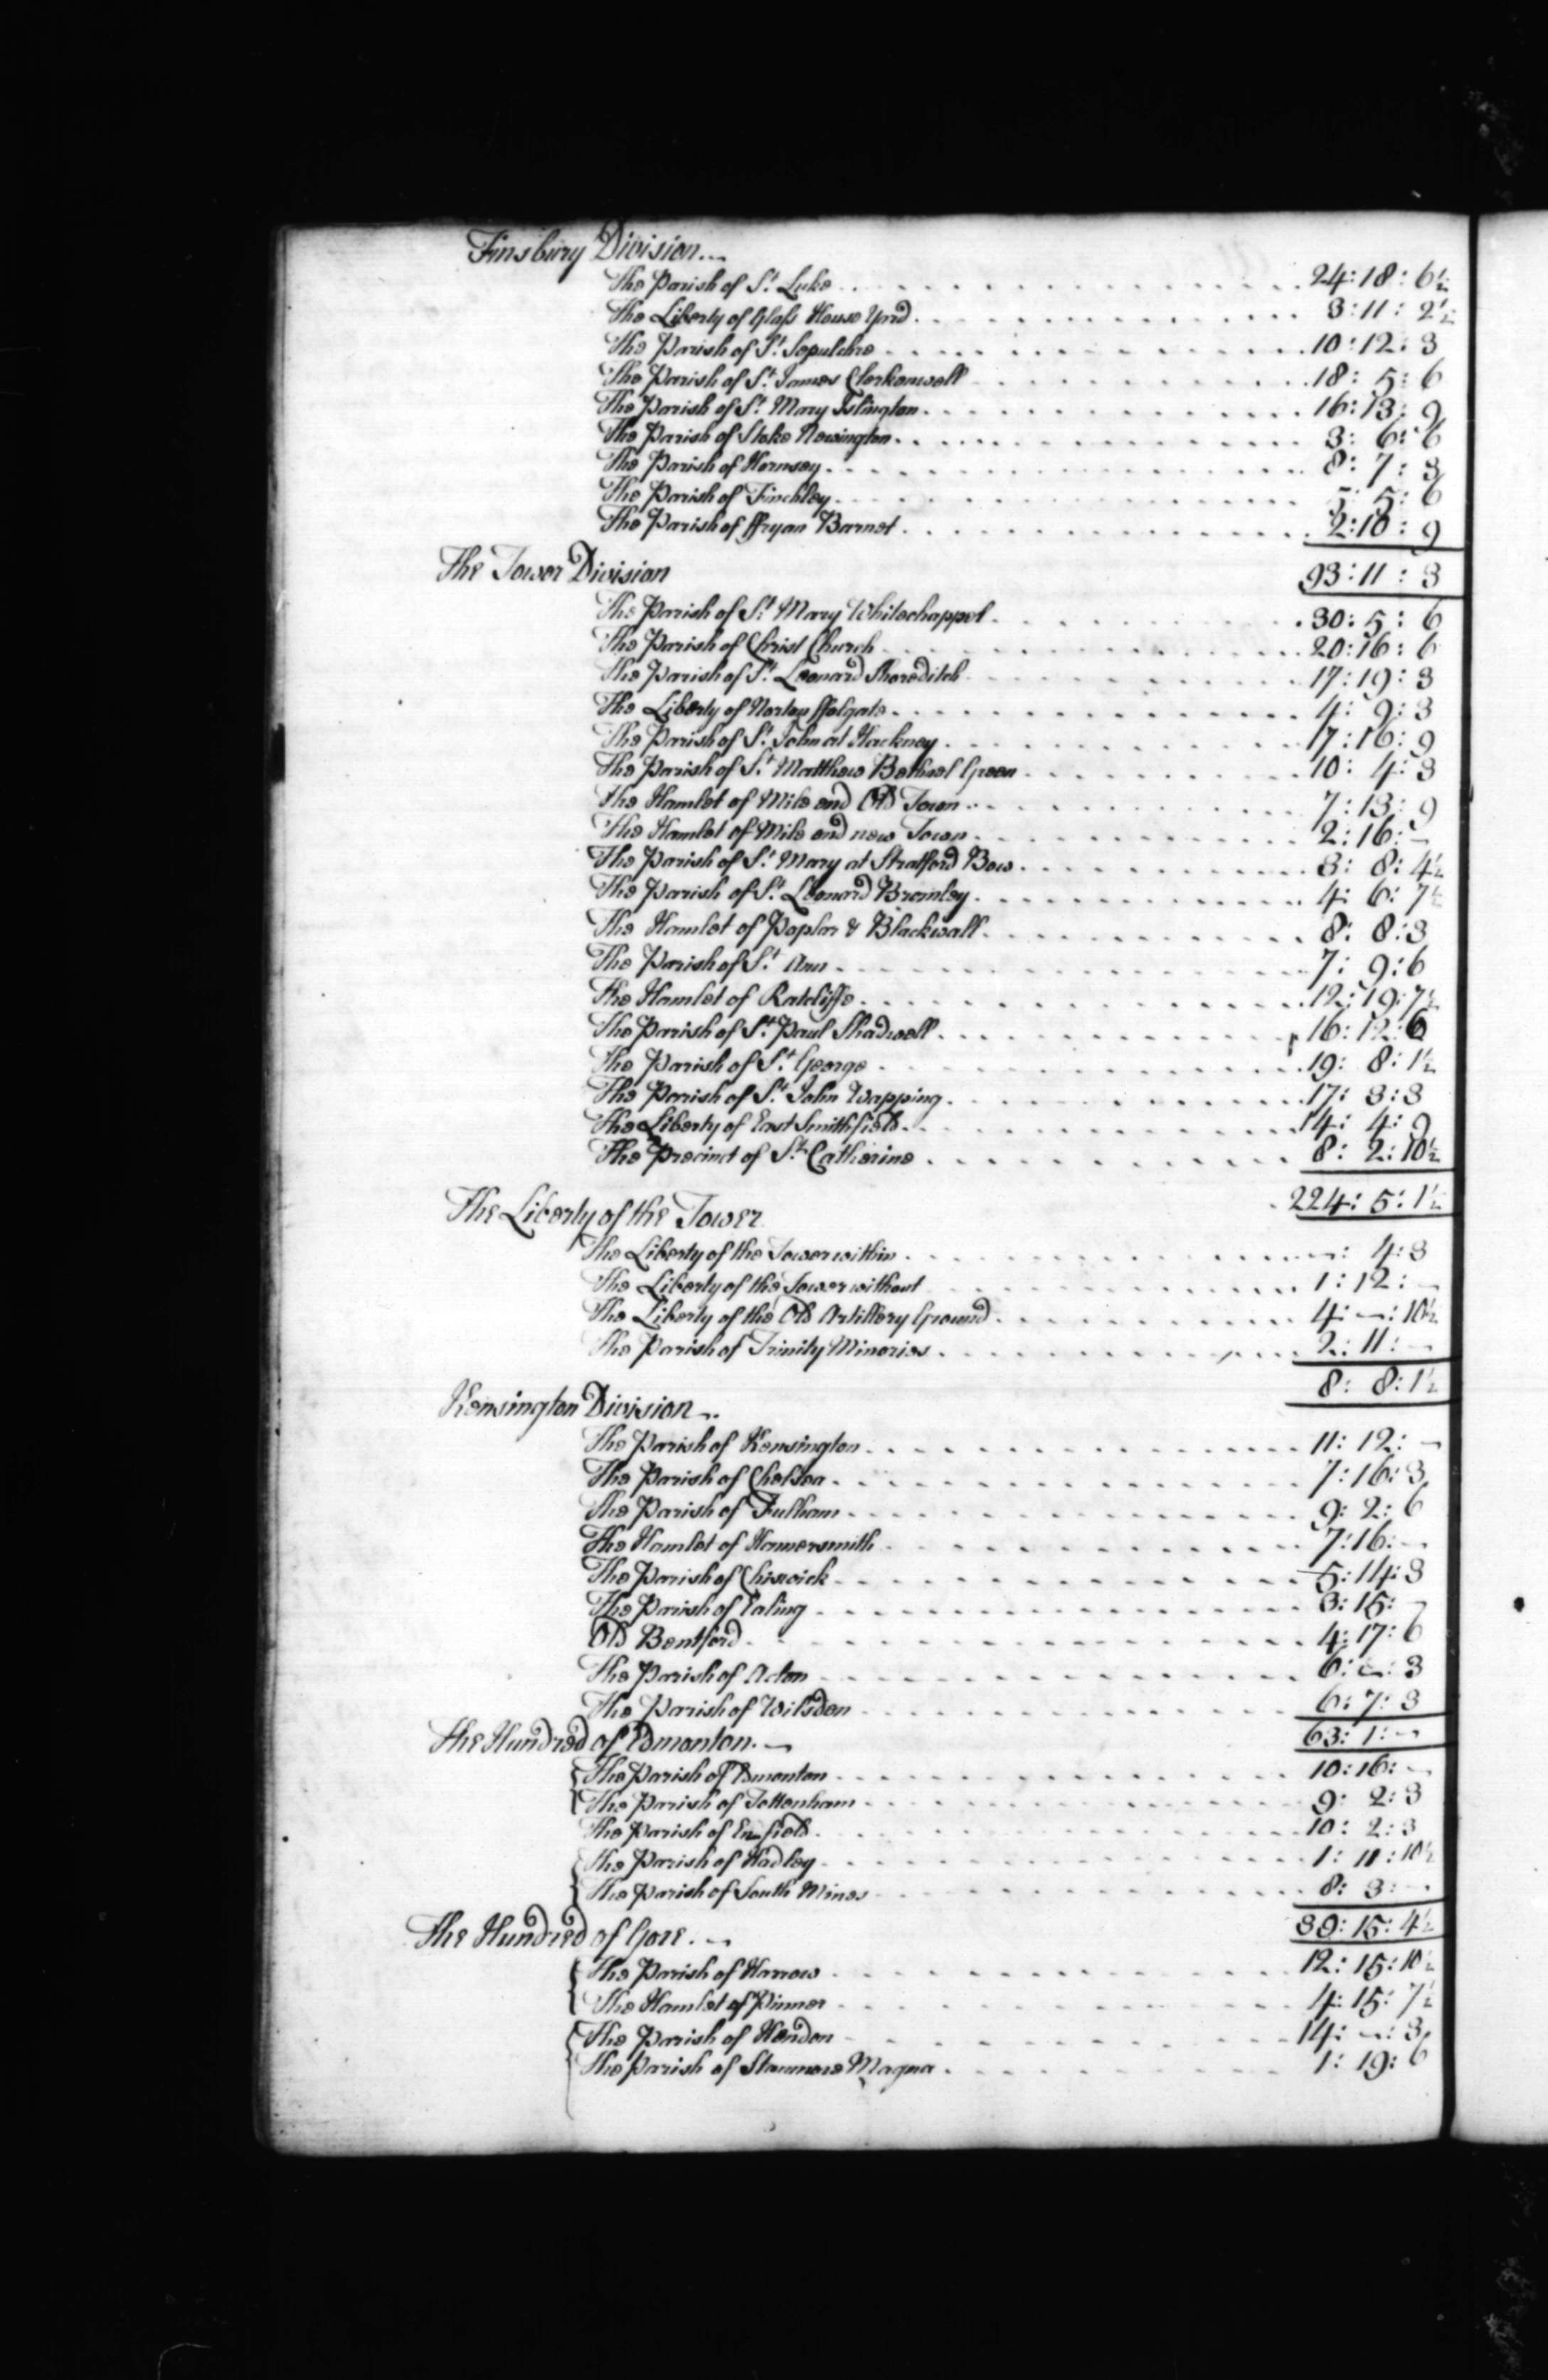 Finsbury Division
The Parish of St. Luke 24:18:6½
The Liberty of Glass House Yard 3:11:2½
The Parish of St. Sepulchre 10:12:3
The Parish of St. James Clerkenwell 18:5:6
The Parish of St. Mary Islington 16:13:9
The Parish of Stoke Newington 3:6:6
The Parish of Hornsey 8:7:3
The Parish of Finchley 5:5:6
The Parish of ffryan Barnet 2:10:9
The Tower Division 93:11:3
The Parish of St. Mary Whitechappel 30:5:6
The Parish of Christ Church 20:16:6
The Parish of St. Leonard Shoreditch 17:19:3
The Liberty of Norton ffolgate 4:9:3
The Parish of St. John at Hackney 17:16:9
The Parish of St. Matthew Bethnel Green 10:4:3
The Hamlet of Mile end Old Town 7:13:9
The Hamlet of Mile end new Town 2:16:—
The Parish of St. Mary at Stratford Bow 3:8:4½
The Parish of St. Leonard Bromley 4:6:7½
The Hamlet of Poplar & Blackwall 8:8:3
The Parish of St. Ann 7:9:6
The Hamlet of Ratcliffe 12:19:7½
The Parish of St. Paul Shadwell 16:12:6
The Parish of St. George 19:8:1½
The Parish of St. John Wapping 17:3:3
The Liberty of East Smithfield 14:4:9
The Precinct of St. Catherine 8:2:10½
224:5:1½
The Liberty of the Tower
The Liberty of the Tower within —:4:3
The Liberty of the Tower without 1:12:—
The Liberty of the Old Artillery Ground 4:—:10½
The Parish of Trinity Minories 2:11:—
8:8:1½
Kensington Division
The Parish of Kensington 11:12:—
The Parish of Chelsea 7:16:3
The Parish of Fulham 9:2:6
The Hamlet of Hamersmith 7:16:—
The Parish of Chiswick 5:14:3
The Parish of Ealing 3:15:—
Old Bentford 4:17:6
The Parish of Acton 6:—:3
The Parish of Wilsden 6:7:3
The Hundred of Edmonton 63:1:—
The Parish of Edmonton 10:16:—
The Parish of Tottenham 9:2:3
The Parish of Enfield 10:2:3
The Parish of Hadley 1:11:10½
The Parish of South Mims 8:3:—
The Hundred of Gore 39:15:4½
The Parish of Harrow 12:15:10½
The Hamlet of Pinner 4:15:7½
The Parish of Hendon 14:—:3
The Parish of Stanmore Magna 1:19:6